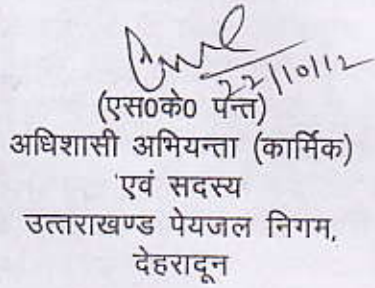 22/10/12
(एस0के0 पन्त)
अधिशासी अभियन्ता (कार्मिक)
एवं सदस्य
उत्तराखण्ड पेयजल निगम,
देहरादून